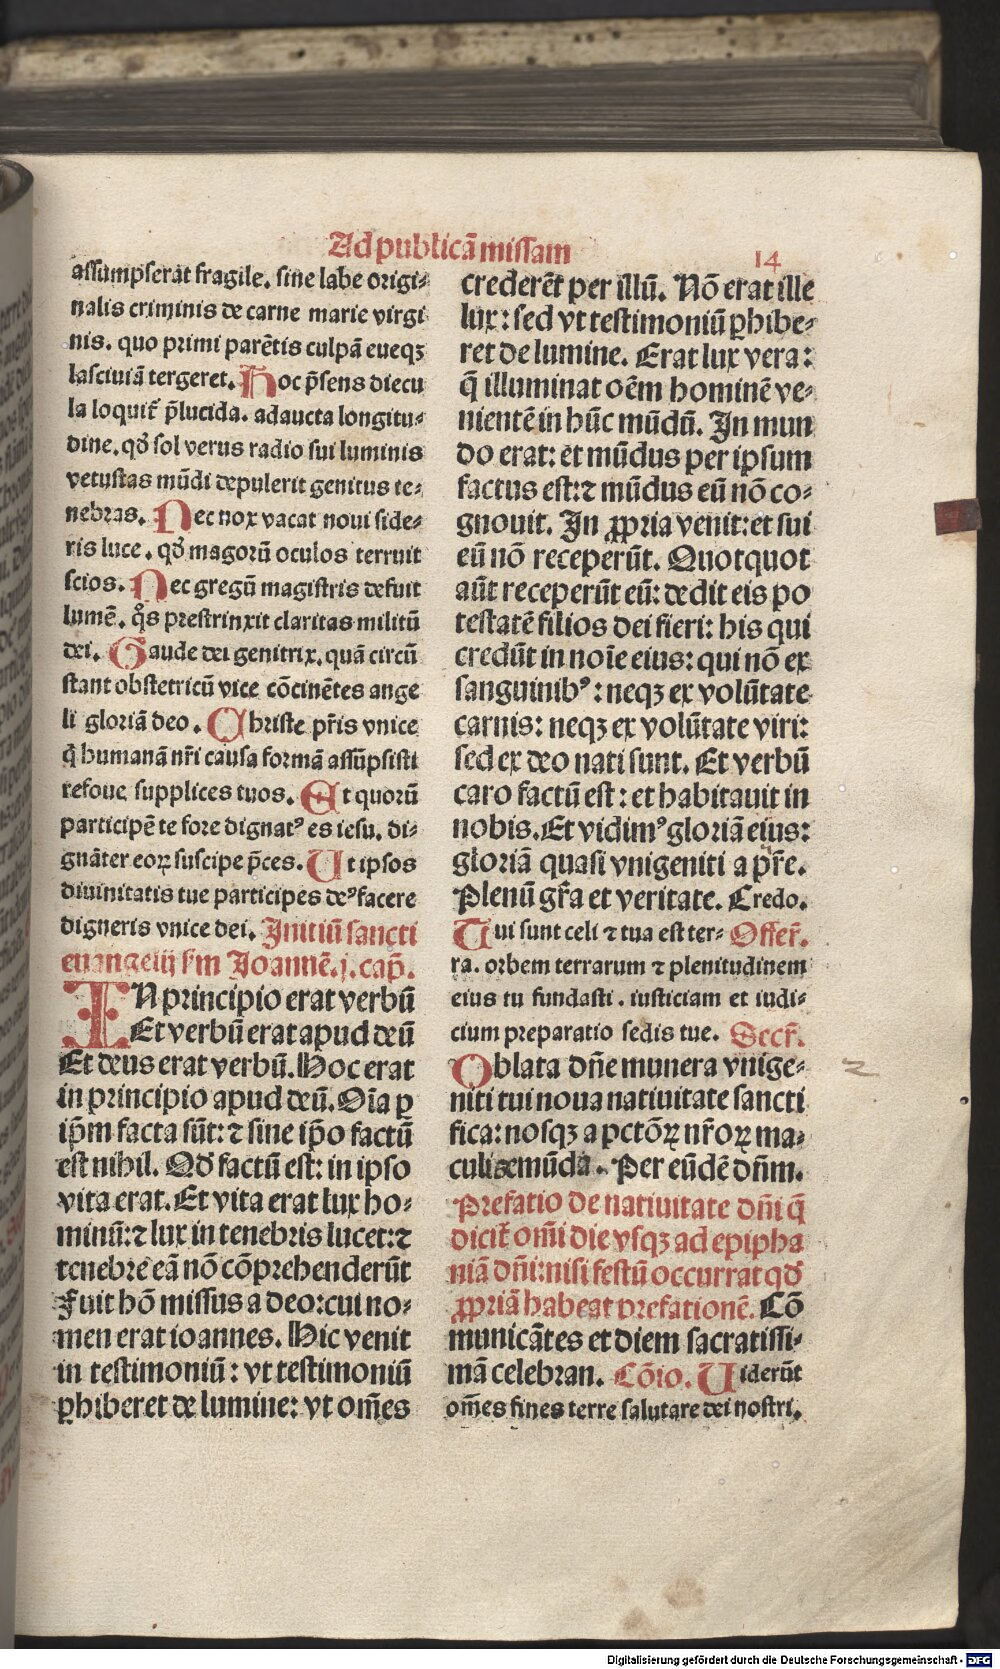 Ad publicā missam
14
assumpserat fragile. sine labe origi⸗
nalis criminis de carne marie virgi
nis. quo primi parētis culpā eueqꝫ
lasciuiā tergeret. Hoc p̄sens diecu
la loquit̄ p̄lucida. adaucta longitu⸗
dine. qđ sol verus radio sui luminis
vetustas mūdi depulerit genitus te⸗
nebras. Nec nox vacat noui side⸗
ris luce. qđ magorū oculos terruit
scios. Nec gregū magistris defuit
lumē. qͦs prestrinxit claritas militū
dei. Gaude dei genitrix. quā circū
stant obstetricū vice cōcinētes ange
li gloriā deo. Christe pr̄is vnice
q̇ humanā nr̄i causa formā assūpsisti
refoue supplices tuos. Et quorū
participē te fore dignatꝰ es iesu. di⸗
gnāter eoꝝ suscipe p̄ces. Ut ipsos
diuinitatis tue participes deꝰ facere
digneris vnice dei. Initiū sancti
euangelij s̄m Joannē. j. cap̄.
IN principio erat verbū
Et verbū erat apud deū
Et deus erat verbū. Hoc erat
in principio apud deū. Oīa ꝑ
ip̄m facta sūt: ⁊ sine ip̄o factū
est nihil. Qđ factū est: in ipso
vita erat. Et vita erat lux ho⸗
minū: ⁊ lux in tenebris lucet: ⁊
tenebre eā nō cōprehenderūt
Fuit hō missus a deo: cui no⸗
men erat ioannes. Hic venit
in testimoniū: vt testimoniū
ꝑhiberet de lumine: vt om̄es
crederēt per illū. Nō erat ille
lux: sed vt testimoniū ꝑhibe⸗
ret de lumine. Erat lux vera:
q̄ illuminat oēm hominē ve⸗
nientē in hūc mūdū. In mun
do erat: et mūdus per ipsum
factus est: ⁊ mūdus eū nō co⸗
gnouit. In ꝓpria venit: et sui
eū nō receperūt. Quotquot
aūt receperūt eū: dedit eis po
testatē filios dei fieri: his qui
credūt in noīe eius: qui nō ex
sanguinibꝰ: neqꝫ ex volūtate
carnis: neqꝫ ex volūtate viri:
sed ex deo nati sunt. Et verbū
caro factū est: et habitauit in
nobis. Et vidimꝰ gloriā eius:
gloriā quasi vnigeniti a pr̄e.
Plenū gr̄a et veritate. Credo.
Tui sunt celi ⁊ tua est ter⸗ Offer̄.
ra. orbem terrarum ⁊ plenitudinem
eius tu fundasti. iusticiam et iudi⸗
cium preparatio sedis tue. Secr̄.
Oblata dn̄e munera vnige⸗
niti tui noua natiuitate sancti
fica: nosqꝫ a pctōꝝ nr̄oꝝ ma⸗
culis emūda. Per eūdē dn̄m.
Prefatio de natiuitate dn̄i q̄
dicit̄ om̄i die vsqꝫ ad epipha
niā dn̄i: nisi festū occurrat qđ
ꝓpriā habeat prefationē. Cō
municātes et diem sacratissi⸗
mā celebran. Cōio. Uiderūt
om̄es fines terre salutare dei nostri.
Digitalisierung gefördert durch die Deutsche Forschungsgemeinschaft - DFG